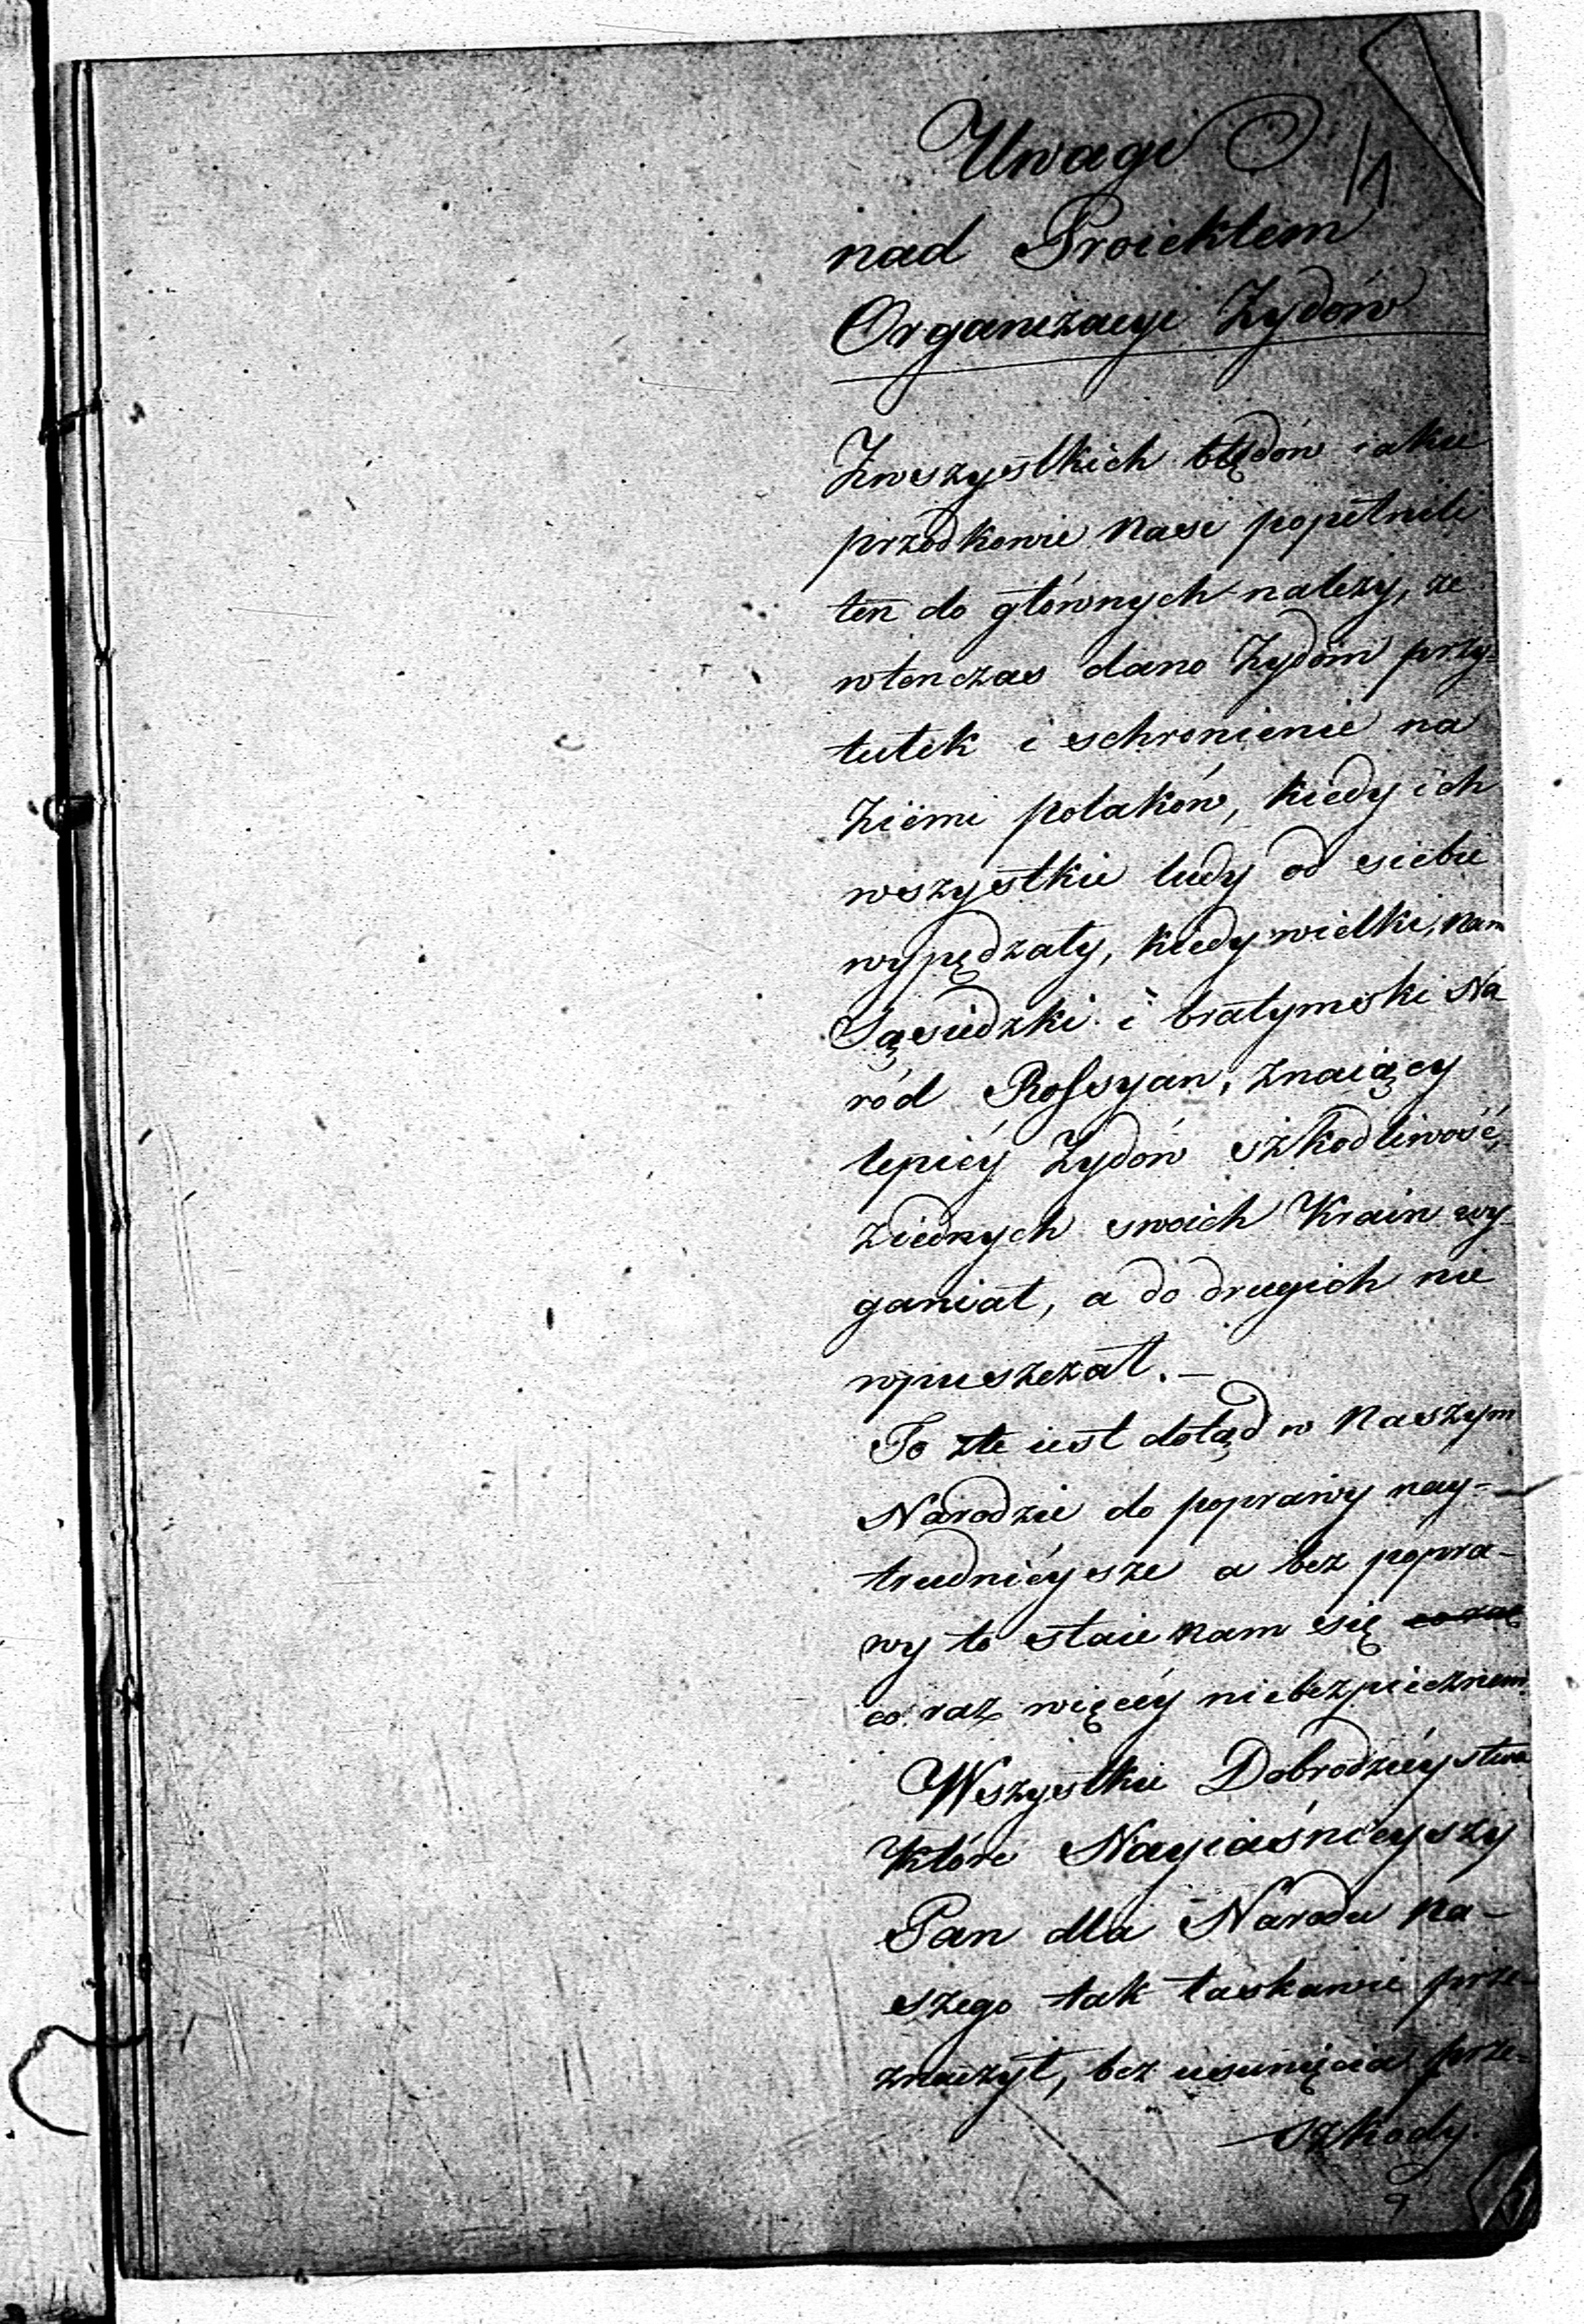 Uwagi
11
nad Proiektem
Organizacyi Żydów
Zwszystkich błędów iakie
przodkowie Nasi popełnili
ten do głównych należy, że
wtenczas dano Żydom przy-
tułek i schronienie na
Ziemi polaków, kiedy ich
wszystkie ludy od siebie
wypędzały, kiedy wielki, nam
Sąsiedzki i bratymski Na
ród Rossyan, znaiący
lepiéy Żydów szkodliwość,
ziednych swoich Krain wy-
ganiał, a do drugich nie
wpuszczał. —
To złe iest dotąd w Naszym
Narodzie do poprawy nay-
trudniéysze a bez popra-
wy to staie nam się
co raz więcéy niebezpiecznem.
Wszystkie Dobrodzieystwa
Które Nayiaśnieyszy
Pan dla Narodu Na-
szego tak łaskawie prze-
znaczył, bez usunięcia prze-
szkody.